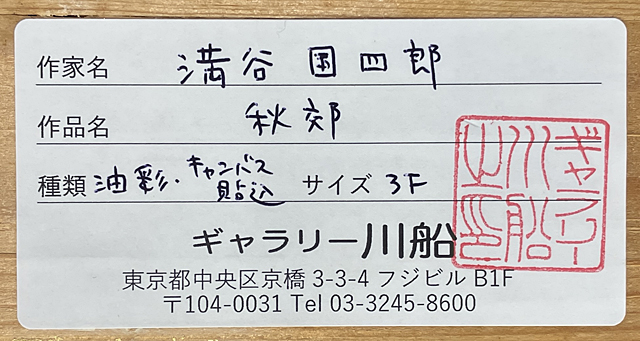 作家名 満谷国四郎
作品名 秋郊
種類 油彩・キャンバス貼込 サイズ 3F
ギャラリー川船
東京都中央区京橋 3-3-4 フジビル B1F
〒104-0031 Tel 03-3245-8600
ギャラリー川船之印